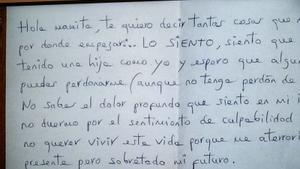 Hola mamita, te quiero decir tantas cosas que
por donde empezar... LO SIENTO, siento que
tenido una hija como yo y espero que algu
puedas perdonarme (aunque no tenga perdón de
No sabes el dolor profundo que siento en mi i
no duermo por el sentimiento de culpabilidad
no querer vivir esta vida porque me aterrori
presente pero sobretodo mi futuro.